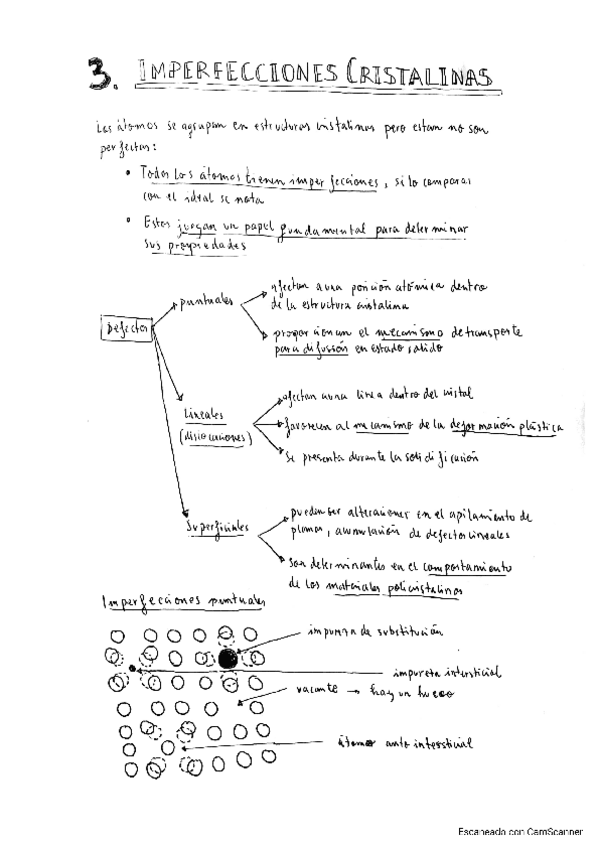 3. IMPERFECCIONES CRISTALINAS
Los átomos se agrupan en estructuras cristalinas pero estan no son
perfectas:
• Todos los átomos tienen imperfecciones, si lo comparas
con el ideal se nota
• Estos juegan un papel fundamental para determinar
sus propiedades
Defectos
puntuales
afectan a una posición atómica dentro
de la estructura cristalina
proporcionan el mecanismo de transporte
para difusión en estado sólido
Lineales
(dislocaciones)
afectan a una linea dentro del cristal
favorecen al mecanismo de la deformación plástica
Se presenta durante la solidificación
Superficiales
pueden ser alteraciones en el apilamiento de
planos, acumulación de defectos lineales
son determinantes en el comportamiento
de los materiales policristalinos
Imperfecciones puntuales
impureza de substitución
impureza intersticial
vacante → hay un hueco
átomo auto intersticial
Escaneado con CamScanner